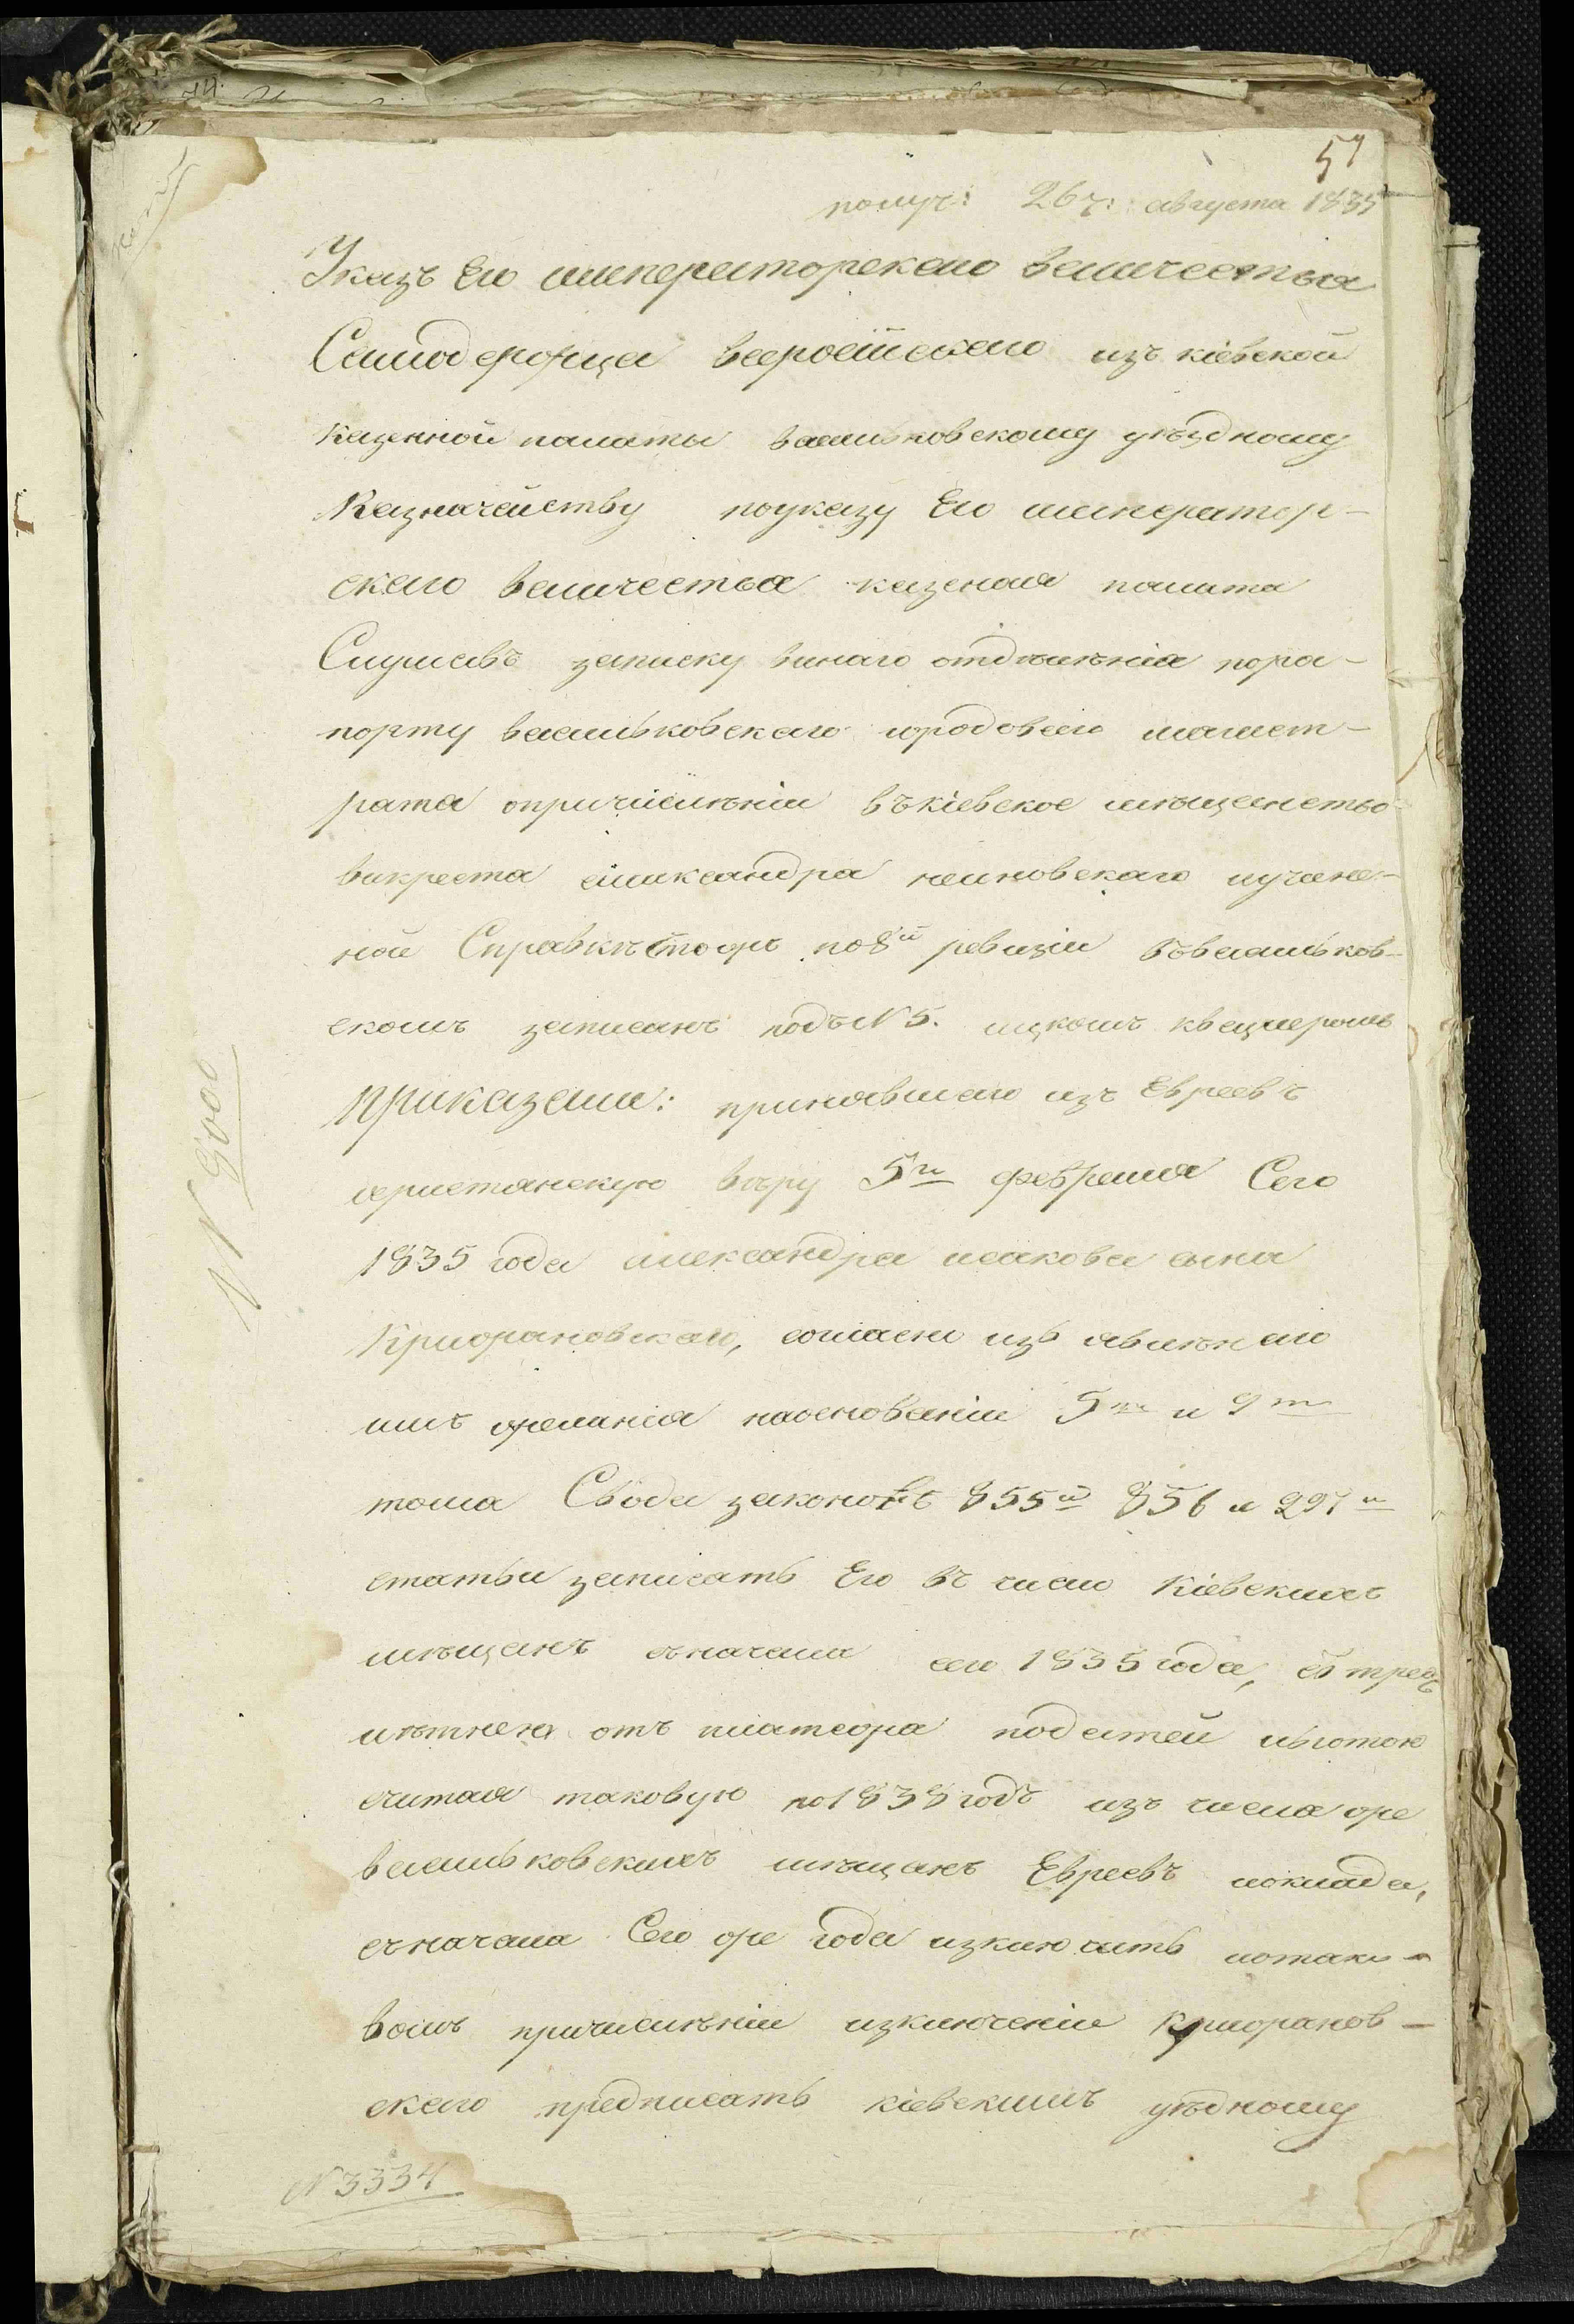 57
получ: 26 ч: августа 1835
Указъ Его императорскаго величества
Самодержца всеросійскаго изъ кіевской
казенной палаты васильковскому уѣздному
Казначейству поуказу Его император-
скаго величества казеная палата
Слушавъ записку винаго отдѣлѣнія пора-
порту васильковскаго городоваго магист-
рата опричисленіи въкіевское мѣщенство
викреста александра
ной Справкѣ тоже по 8й ревизіи въвасильков-
скомъ записанъ подъ N 5. ицкомъ
приказали: принявшаго изъ Евреевъ
христіанскую вѣру 5го февраля Сего
1835 года александра исакова сына
Крижановскаго, согласно изъявлѣнаго
имъ желанія наоснованіи 5го и 9го
тома Свода законовъ 855й 856 и 297й
статьи записать Его въ число Кіевскихъ
мѣщанъ сначала сего 1835 года, съ трех
лѣтнею отъ платежа податей льготою
считая таковую по 1838 годъ изъ числа же
васильковскихъ мѣщанъ Евреевъ
сначала Сего же года изключить отако-
вомъ причисленіи изключеніи Крижанов-
скаго предписать кіевскимъ уѣдному
N 3334
N 9000